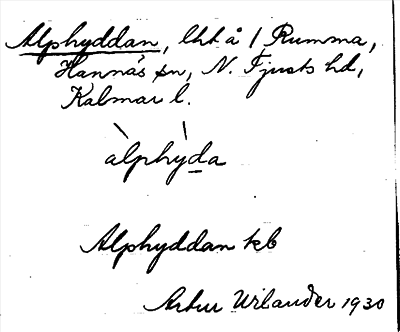 Alphyddan, lht å / Rumma,
Hannäs sn, N. Tjusts hd,
Kalmar l.
àlphỳda
Alphyddan kb
Artur Wilander 1930